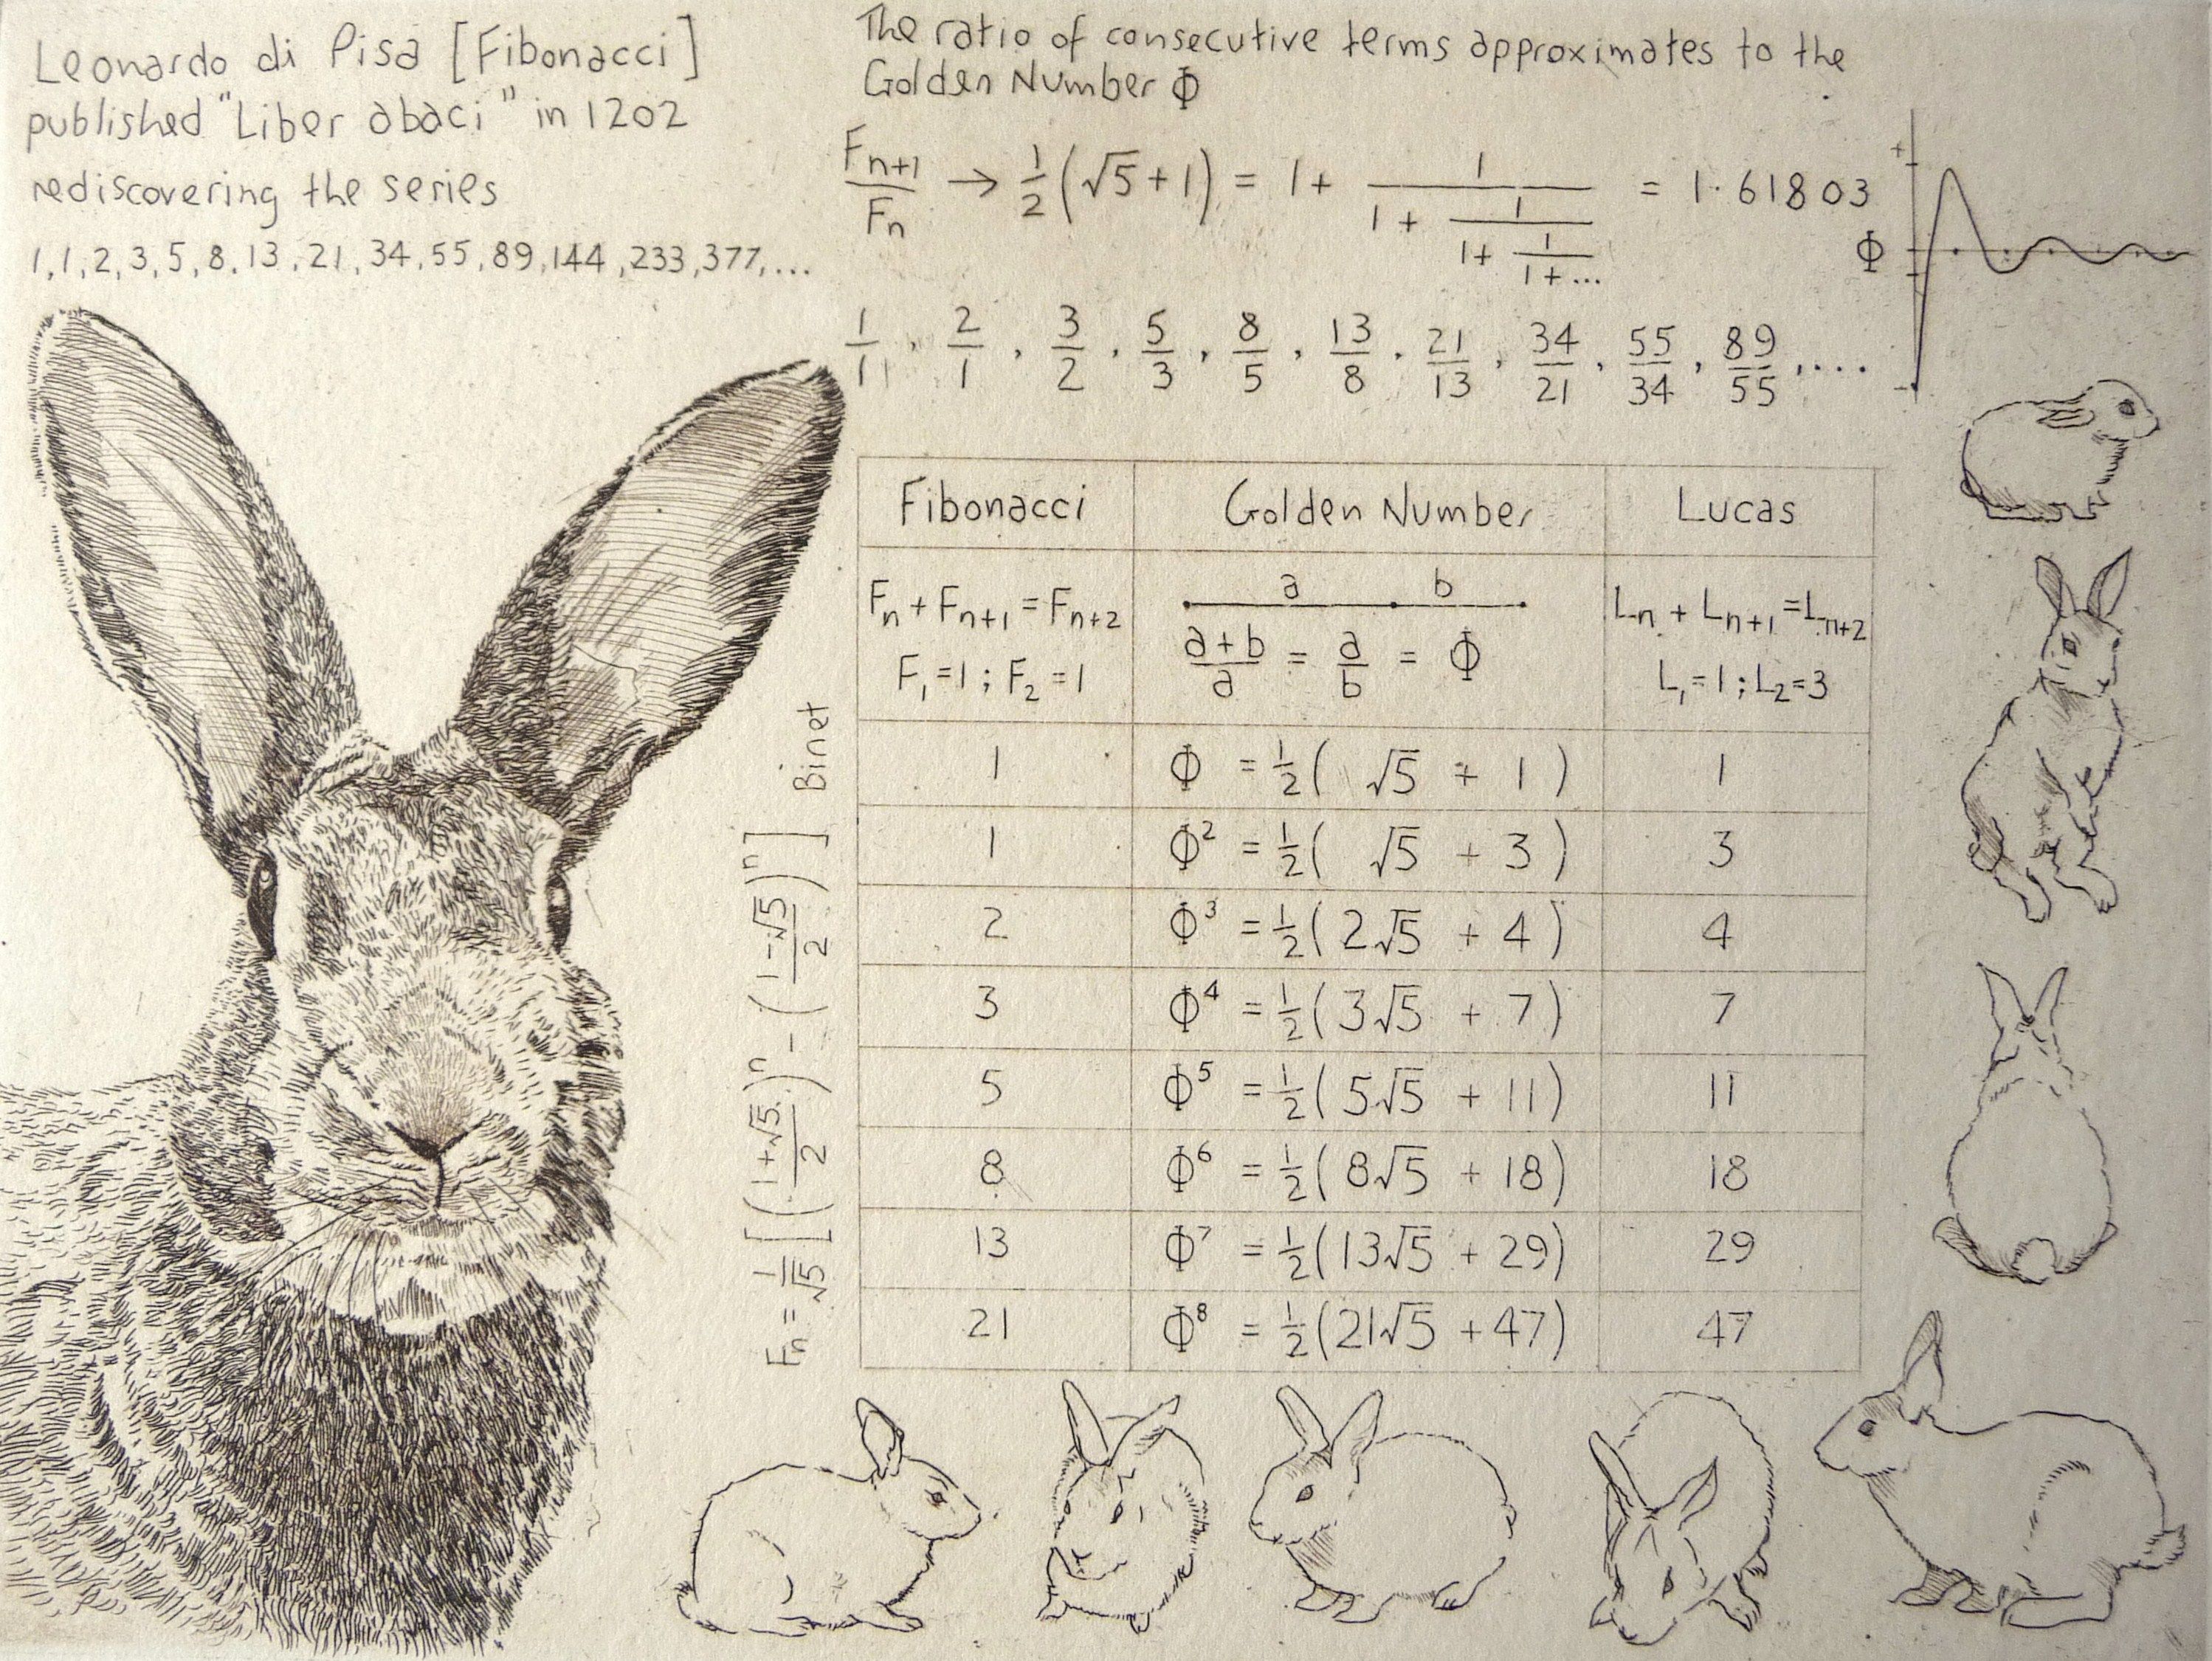 Leonardo di Pisa [Fibonacci]
published "Liber abaci" in 1202
rediscovering the series
1, 1, 2, 3, 5, 8, 13, 21, 34, 55, 89, 144, 233, 377, ...
The ratio of consecutive terms approximates to the
Golden Number Φ
Fn+1/Fn → 1/2(√5+1) = 1+ 1/(1+ 1/(1+ 1/(1+...))) = 1·61803
+
Φ
-
1/1, 2/1, 3/2, 5/3, 8/5, 13/8, 21/13, 34/21, 55/34, 89/55, ....
Fibonacci Golden Number Lucas
a b
Fn + Fn+1 = Fn+2 (a+b)/a = a/b = Φ Ln + Ln+1 = Ln+2
F1 = 1 ; F2 = 1 L1 = 1 ; L2 = 3
1 Φ = 1/2( √5 + 1 ) 1
1 Φ² = 1/2( √5 + 3 ) 3
2 Φ³ = 1/2( 2√5 + 4 ) 4
3 Φ⁴ = 1/2( 3√5 + 7 ) 7
5 Φ⁵ = 1/2( 5√5 + 11 ) 11
8 Φ⁶ = 1/2( 8√5 + 18 ) 18
13 Φ⁷ = 1/2( 13√5 + 29 ) 29
21 Φ⁸ = 1/2( 21√5 + 47 ) 47
Fn = 1/√5 [((1+√5)/2)ⁿ - ((1-√5)/2)ⁿ] Binet